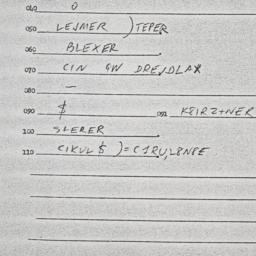 040 0
050 LEJMER ) TEPER
060 BLEXER
070 CIN GW DREJDLAR
080 —
090 $ 091 KEIRZ+NER
100 SLERER
110 CIKUL $ ) =